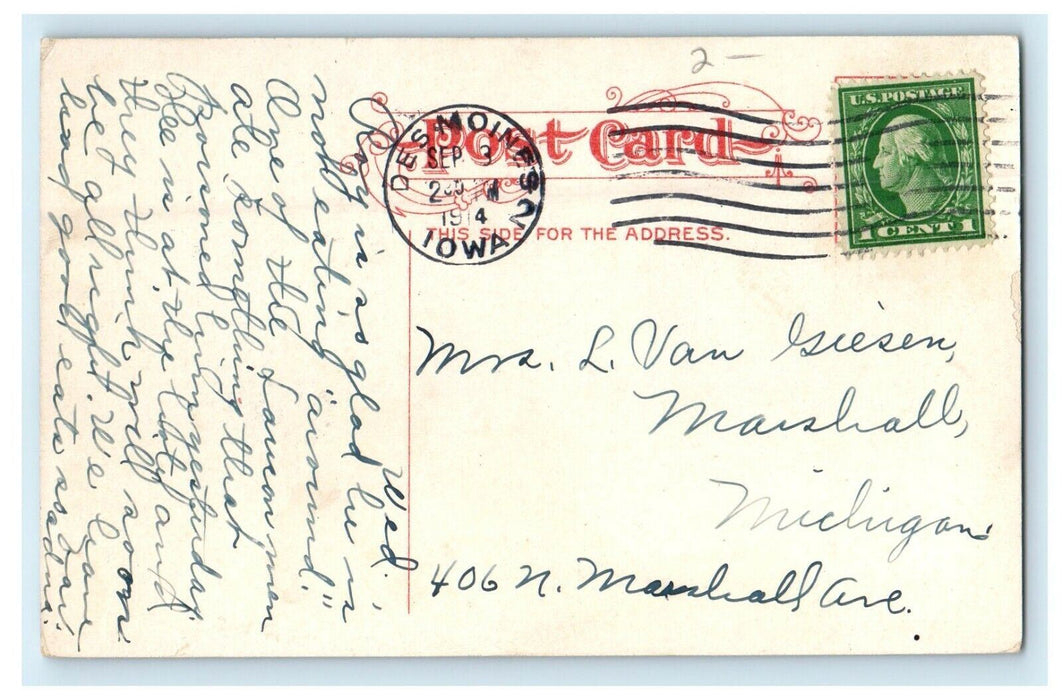 2-
Post Card
THIS SIDE FOR THE ADDRESS.
DES MOINES 2
SEP 3
230 PM
1914
IOWA
U.S. POSTAGE
1 CENT 1
Wed.
Roy is so glad he is
not eating "around."
One of the Lawson men
ate something that
Poisoned him yesterday.
Hee is at the City and
they think will soon
be all right. We have
had good eats so far
Mrs. L. Van Giesen,
Marshall,
Michigan.
406 N. Marshall Ave.